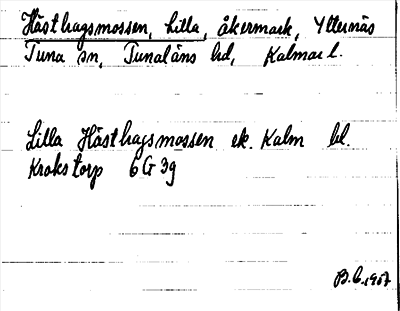 Hästhagsmossen, Lilla, åkermark, Ytternäs
Tuna sn, Tunaläns hd, Kalmar l.
Lilla Hästhagsmossen ek. Kalm bl.
Krokstorp 6G 3g
B.C. 1967